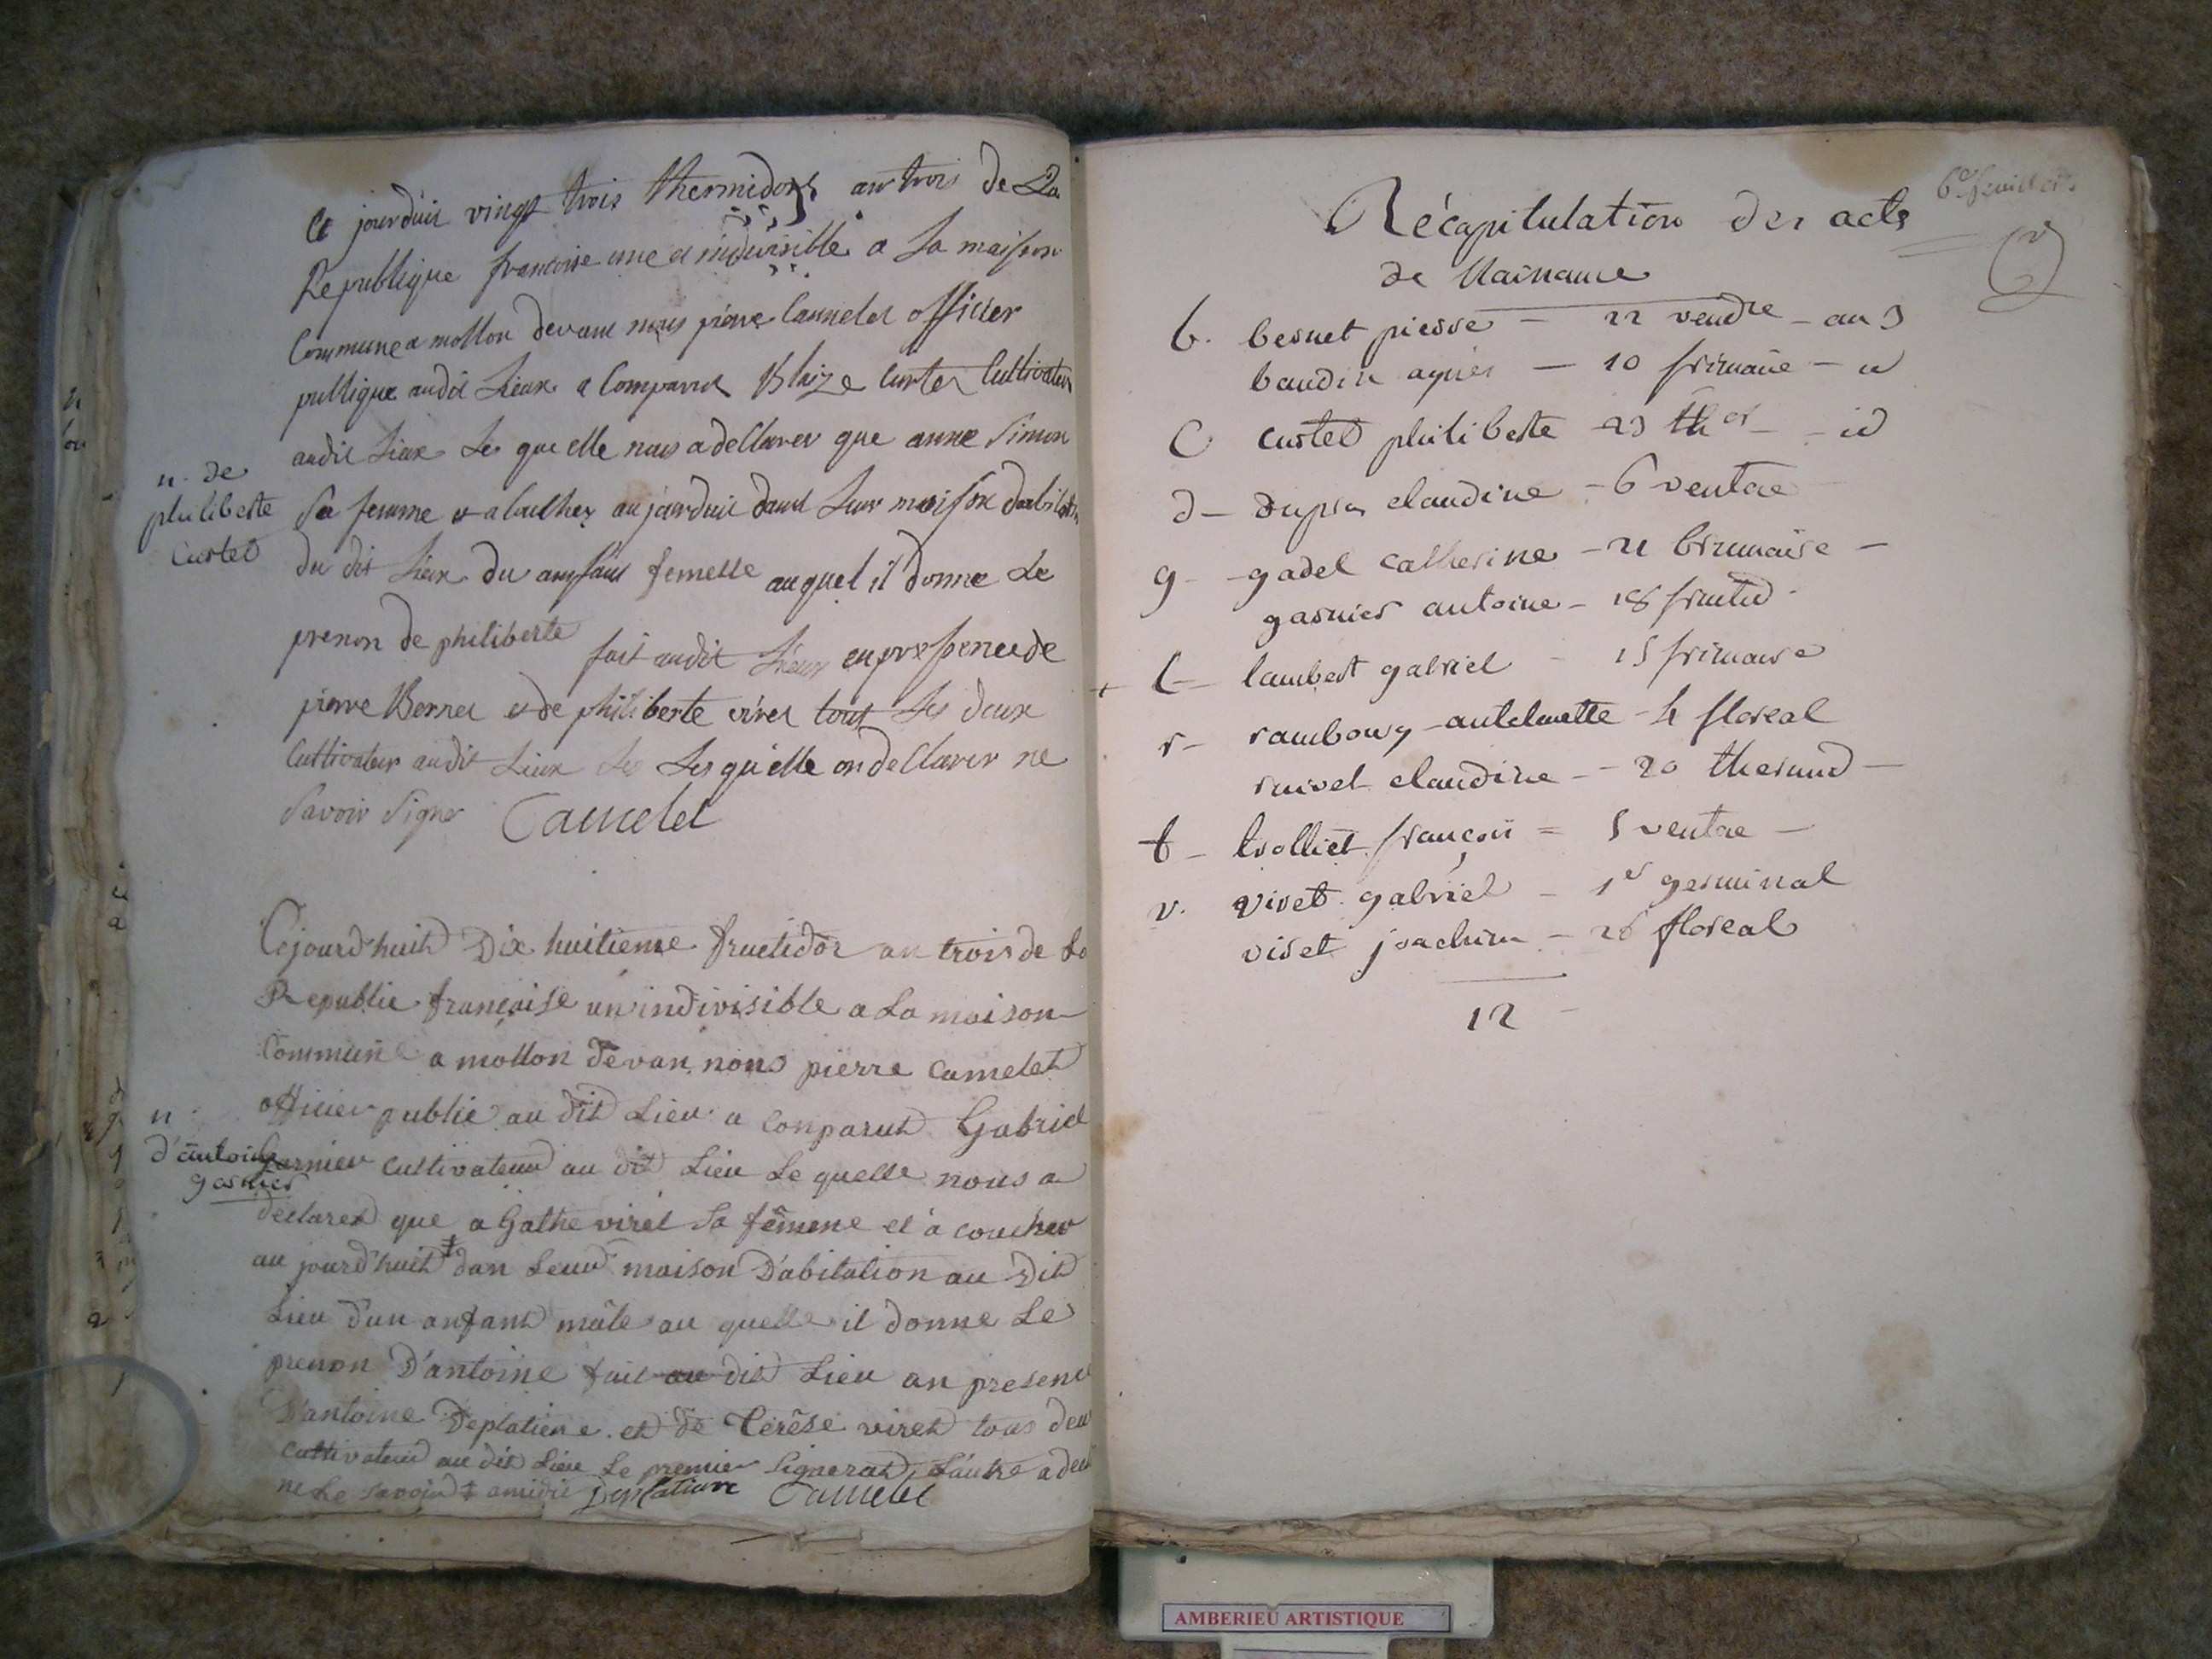 Ce jourduit vingt trois thermidor an trois de La
Republique francoise une et indivisible a La maison
Commune a mollon devant nous pierre Camelet officier
publique audit Lieux a Comparut Blaize Curtet Cultivateur
audit Lieux Les quelle nous a dellarer que anne Simon
n. de
philiberte
Curtet
Sa femme et alouther aujourduit dant Leur maison dabitation
du dit Lieux du anfant femelle auquel il donne Le
prenon de philiberte fait audit Lieux en presence de
pierre Bernet et de philiberte viret tout Les deux
Cultivateur audit Lieux Les Les quelle on dellarer ne
Savoir Signer Camelet
Cejourd'huit Dix huitieme fructidor an trois de La
Republie française un indivisible a La maison
Commune a mollon devan nous pierre Camelet
officier publie au dit Lieu a Conparut Gabriel
n
d'antoine
garnier
Garnier Cultivateur au dit Lieu Le quelle nous a
declarer que agathe viret Sa fêmme et à coucher
au jourd'huit ‡ dan Leur maison D'abitation au Dit
Lieu d'un anfant mâle au quelle il donne Le
prenon D'antoine fait au dit Lieu an presence
D'antoine Deplatiere et de Terêse viret tous deux
Cultivateur au dit Lieu Le premier Signerat, L'autre a
ne Le savoir ‡ amidie Deplatiere Camelet
6e feuillet
Récapitulation des acts
de Naisance
b. bernet pierre - 22 vendre - an 3
baudin agnès - 10 frimaire - id
C curtet philiberte 23 thor - id
d - dupra claudine - 6 ventae
g - gadel catherine - 21 brumaire -
garnier antoine - 18 fructid
+ l - lambert gabriel - 15 frimaire
r - rambourg antelmette - 4 floreal
ruivet claudine - 20 thermid -
t - trolliet françois = 5 ventae -
v. viret gabriel - 1er germinal
viret joachim - 26 floreal
12 -
AMBERIEU ARTISTIQUE